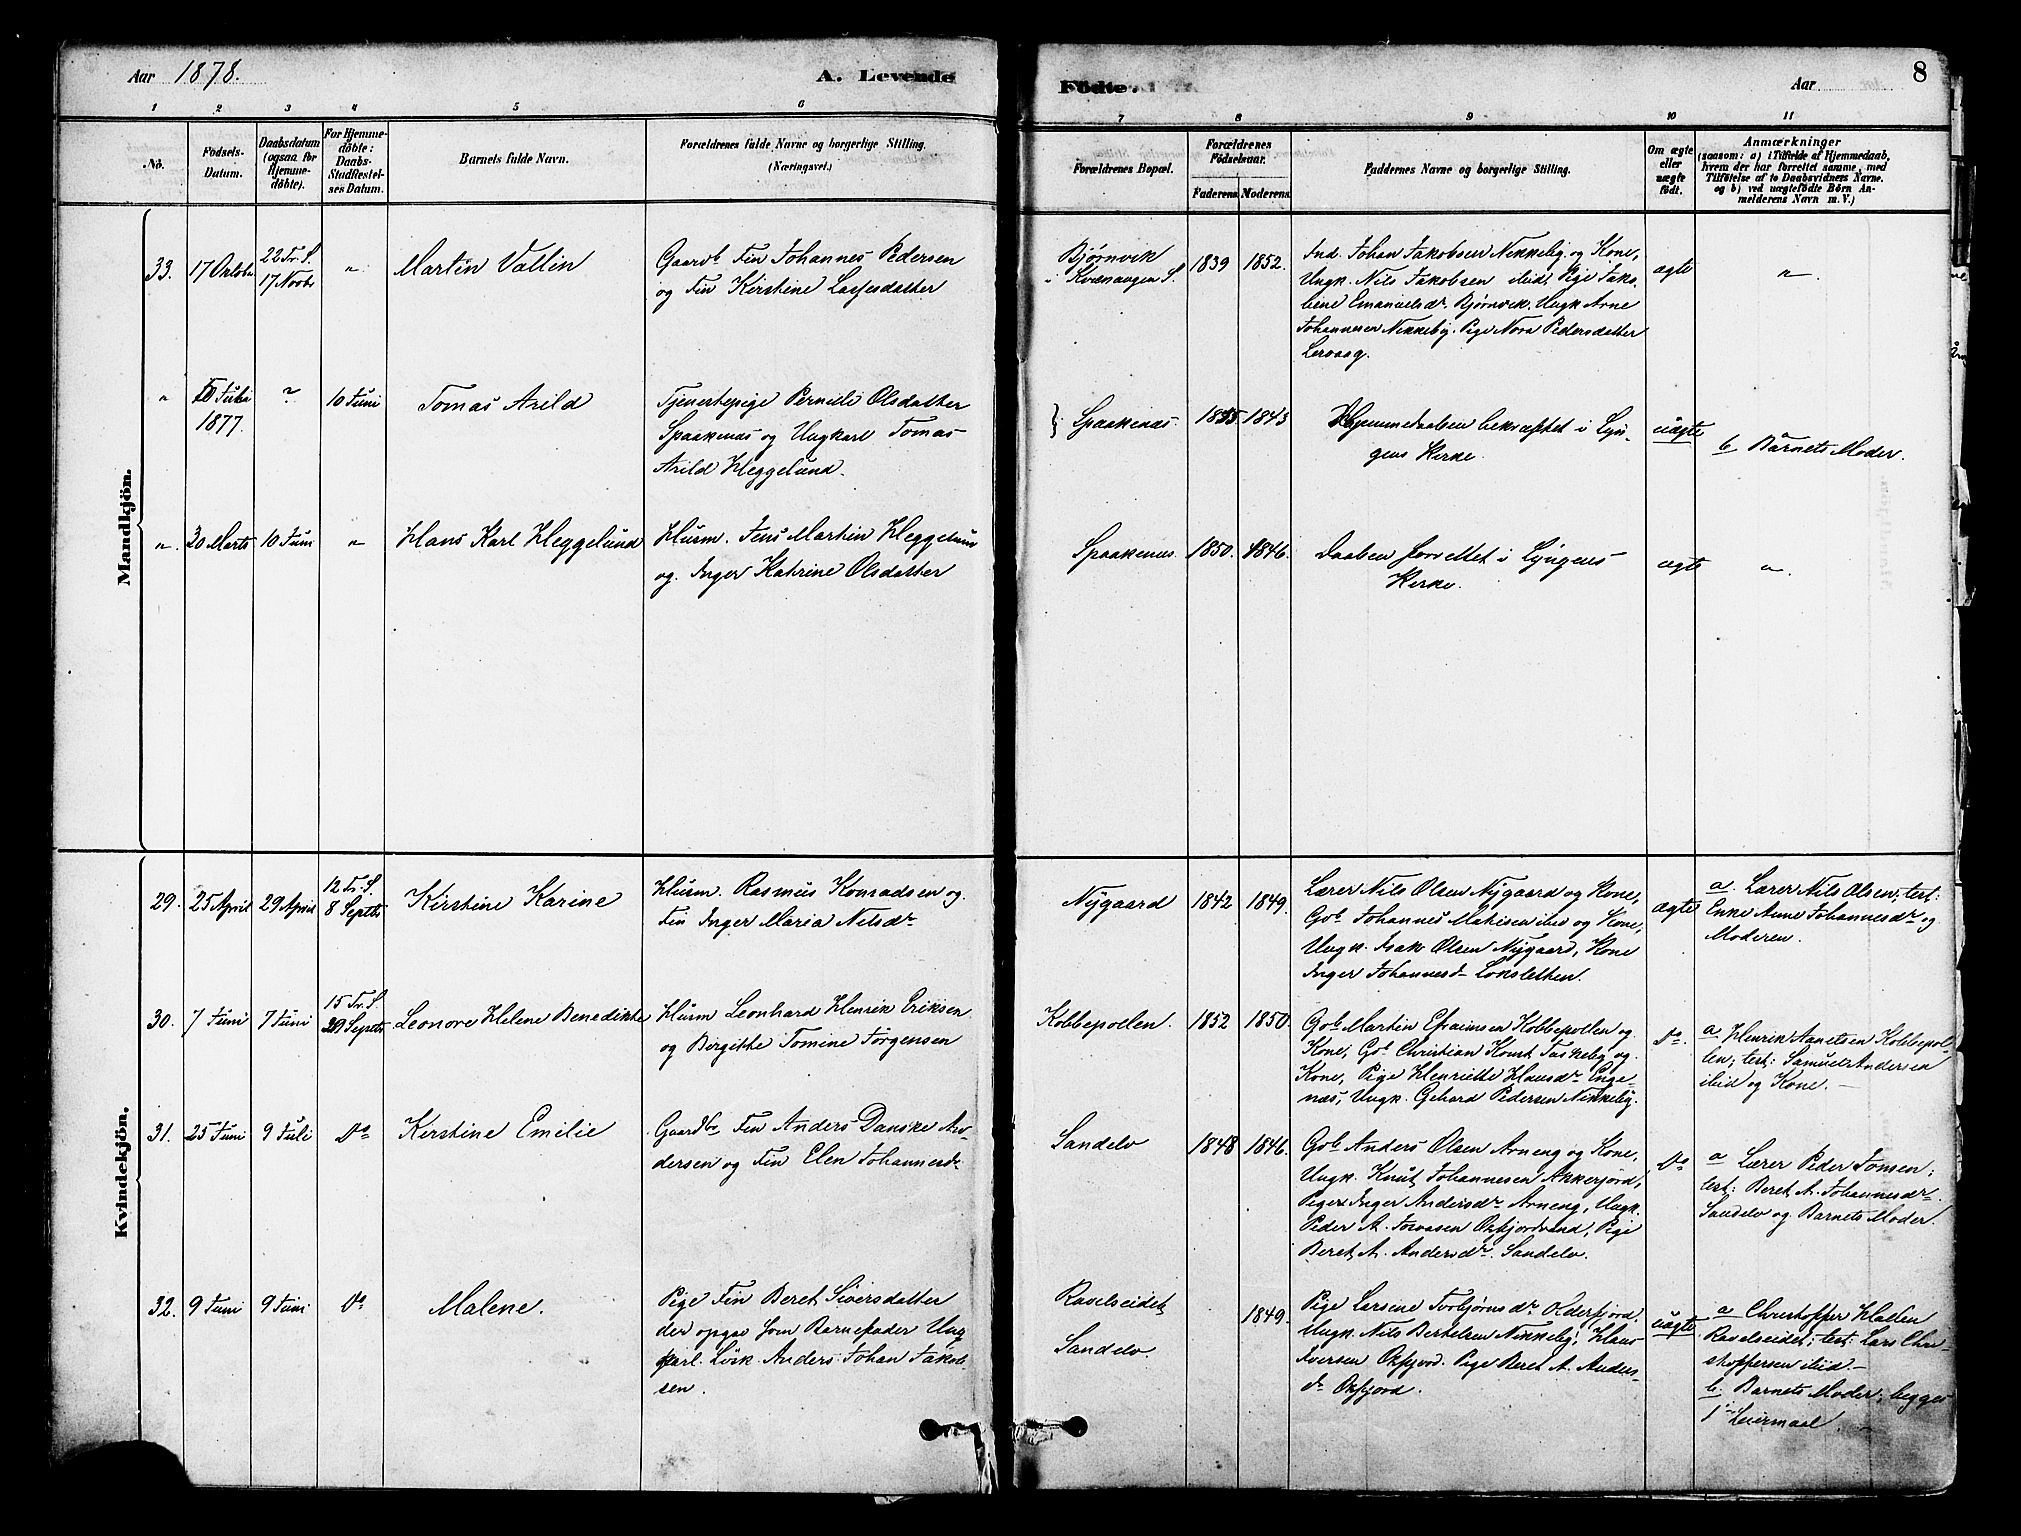 Aar 1878.
A. Levende
Födte.
Aar
8
1 2 3 4 5 6 7 8 9 10 11
No.
Födsels-
Datum.
Daabsdatum
(ogsaa for
Hjemme-
döbte).
For Hjemme-
döbte:
Daabs-
Stadfæstel-
ses Datum.
Barnets fulde Navn.
Forældrenes fulde Navne og borgerlige Stilling.
(Næringsvei.)
Forældrenes Bopæl.
Forældrenes
Födselsaar.
Faderens Moderens
Faddernes Navne og borgerlige Stilling.
Om ægte
eller
uægte
födt.
Anmærkninger
(saasom: a) i Tilfælde af Hjemmedaab,
hvem der har forrettet samme, med
Tilföielse af to Daabsvidners Navne.
og b) ved uægtefödte Börn An-
melderens Navn m. V.)
Mandkjön.
33. 17 Octobr 22 Tr. S. 17 Novbr " Martin Vallin
Gaardb. Fin Johannes Pedersen
og Fin Kirstine Lassesdatter
Bjørnvik
i Kvænangen S.
1839 1852.
Ind. Johan Jakobsen Nikkeby og Kone,
Ungk. Nils Jakobsen ibid, Pige Jako-
bine Emanuelsdr. Bjørnvik, Ungk Arne
Johannesen Nikkeby. Pige Nora Pedersdatter
Lervaag.
ægte "
" 10 Juli 1877. " 10 Juni Tomas Arild
Tjenestepige Pernille Olsdatter
Spaakenæs og Ungkarl Tomas
Arild Heggelund.
Spaakenæs. 1855. 1843
Hjemmedaaben bekræftet i Lyn-
gens Kirke.
uægte b Barnets Moder.
". 30 Marts 10 Juni " Hans Karl Heggelund
Husm. Jens Martin Heggelund
og. Inger Katrine Olsdatter
Spaakenæs 1850. 1846.
Daaben forrettet i Lyngens
Kirke.
ægte ".
Kvindekjön.
29. 25 April 29 April 12 Tr. S. 8 Septbr Kirstine Karine
Husm. Rasmus Konradsen og
Fin Inger Maria Nilsdr.
Nygaard 1842 1849.
Lærer Nils Olsen Nygaard og Kone,
Gb. Johannes Mathisen ibid og Kone,
Ungk. Isak Olsen Nygaard, Kone
Inger Johannesd. Loksletten.
ægte
a. Lærer Nils Olsen, test:
Enke Anne Johannesdr og
Moderen.
30. 7 Juni 7 Juni 15 Tr. S. 29 Septbr Leonore Helene Benedikte
Husm Leonhard Henrik Eriksen
og Birgithe Tomine Jørgensen
Kobbepollen. 1852 1850.
Gb. Martin Efraimsen Kobbepollen og
Kone, Gb. Christian Knut Taskeby og
Kone, Pige Henriette Hansdr. Enge-
næs, Ungk. Gehard Pedersen Nikkeby.
Do.
a Henrik Anetsen Kobbepol-
len; test: Samuel Andersen
ibid og Kone. —
31. 25 Juni 9 Juli Do Kirstine Emilie
Gaardbr Fin Anders Danske An-
dersen og Fin Elen Johannesdr.
Sandelv 1848 1846.
Gb. Anders Olsen Arneng og Kone,
Ungk. Knut Johannesen Ankerfjord,
Piger Inger Andersdr. Arneng, Ungk.
Peder A. Josvasen Oxfjordvand, Pige
Beret A. Andersdr. Sandelv.
Do
a Lærer Peder Tomsen;
test: Beret A. Johannesdr.
Sandelv og Barnets Moder.
32. 9 Juni 9 Juni Do Malene.
Pige Fin Beret Siversdatter
der opgav som Barnefader Ung
karl Løsk. Anders Johan Jakob-
sen.
Ravelseidet
Sandelv.
1849.
Pige Larsine Torbjørnsdr. Olderfjord.
Ungk. Nils Bertelsen Nikkeby, Hans
Iversen Oxfjord. Pige Beret A. Anders-
dr Oxfjord.
uægte
a Christoffer Hansen
Ravelseidet; test: Lars Chri-
stoffersen ibid. —
b. Barnets Moder; begges
1ste Leiermaal.